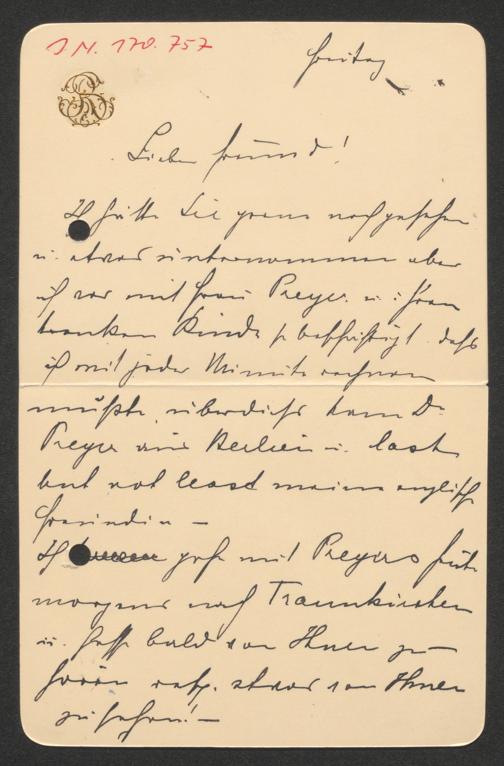 J.N. 170.757
Freitag
Lieber Freund!
Ich hätte Sie gerne noch gesehen
u. etwas unternommen aber
ich war mit Frau Preyer u. ihrem
kranken Kinde so beschäftigt dass
ich mit jeder Minute rechnen
mußte, überdiess kam Dr
Preyer aus Berlin u. last
but not least meine englische
Freundin –
Ich gehe mit Preyers
morgens nach Traunkirchen
u. hoffe bald von Ihnen zu
hören resp. etwas von Ihnen
zu sehen! –